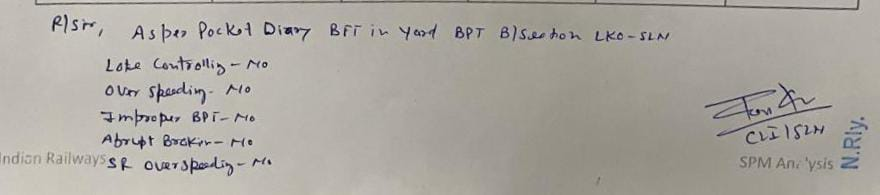 R/Sir, As per Pocket Diary BFT in Yard BPT B/Section LKO-SLN
Late Controlling - No
Over Speeding - No
Improper BPT - No
Abrupt Brakin - No
SR Overspeeding - No
CLI/SLN
Indian Railways
SPM An 'ysis
N.Rly.